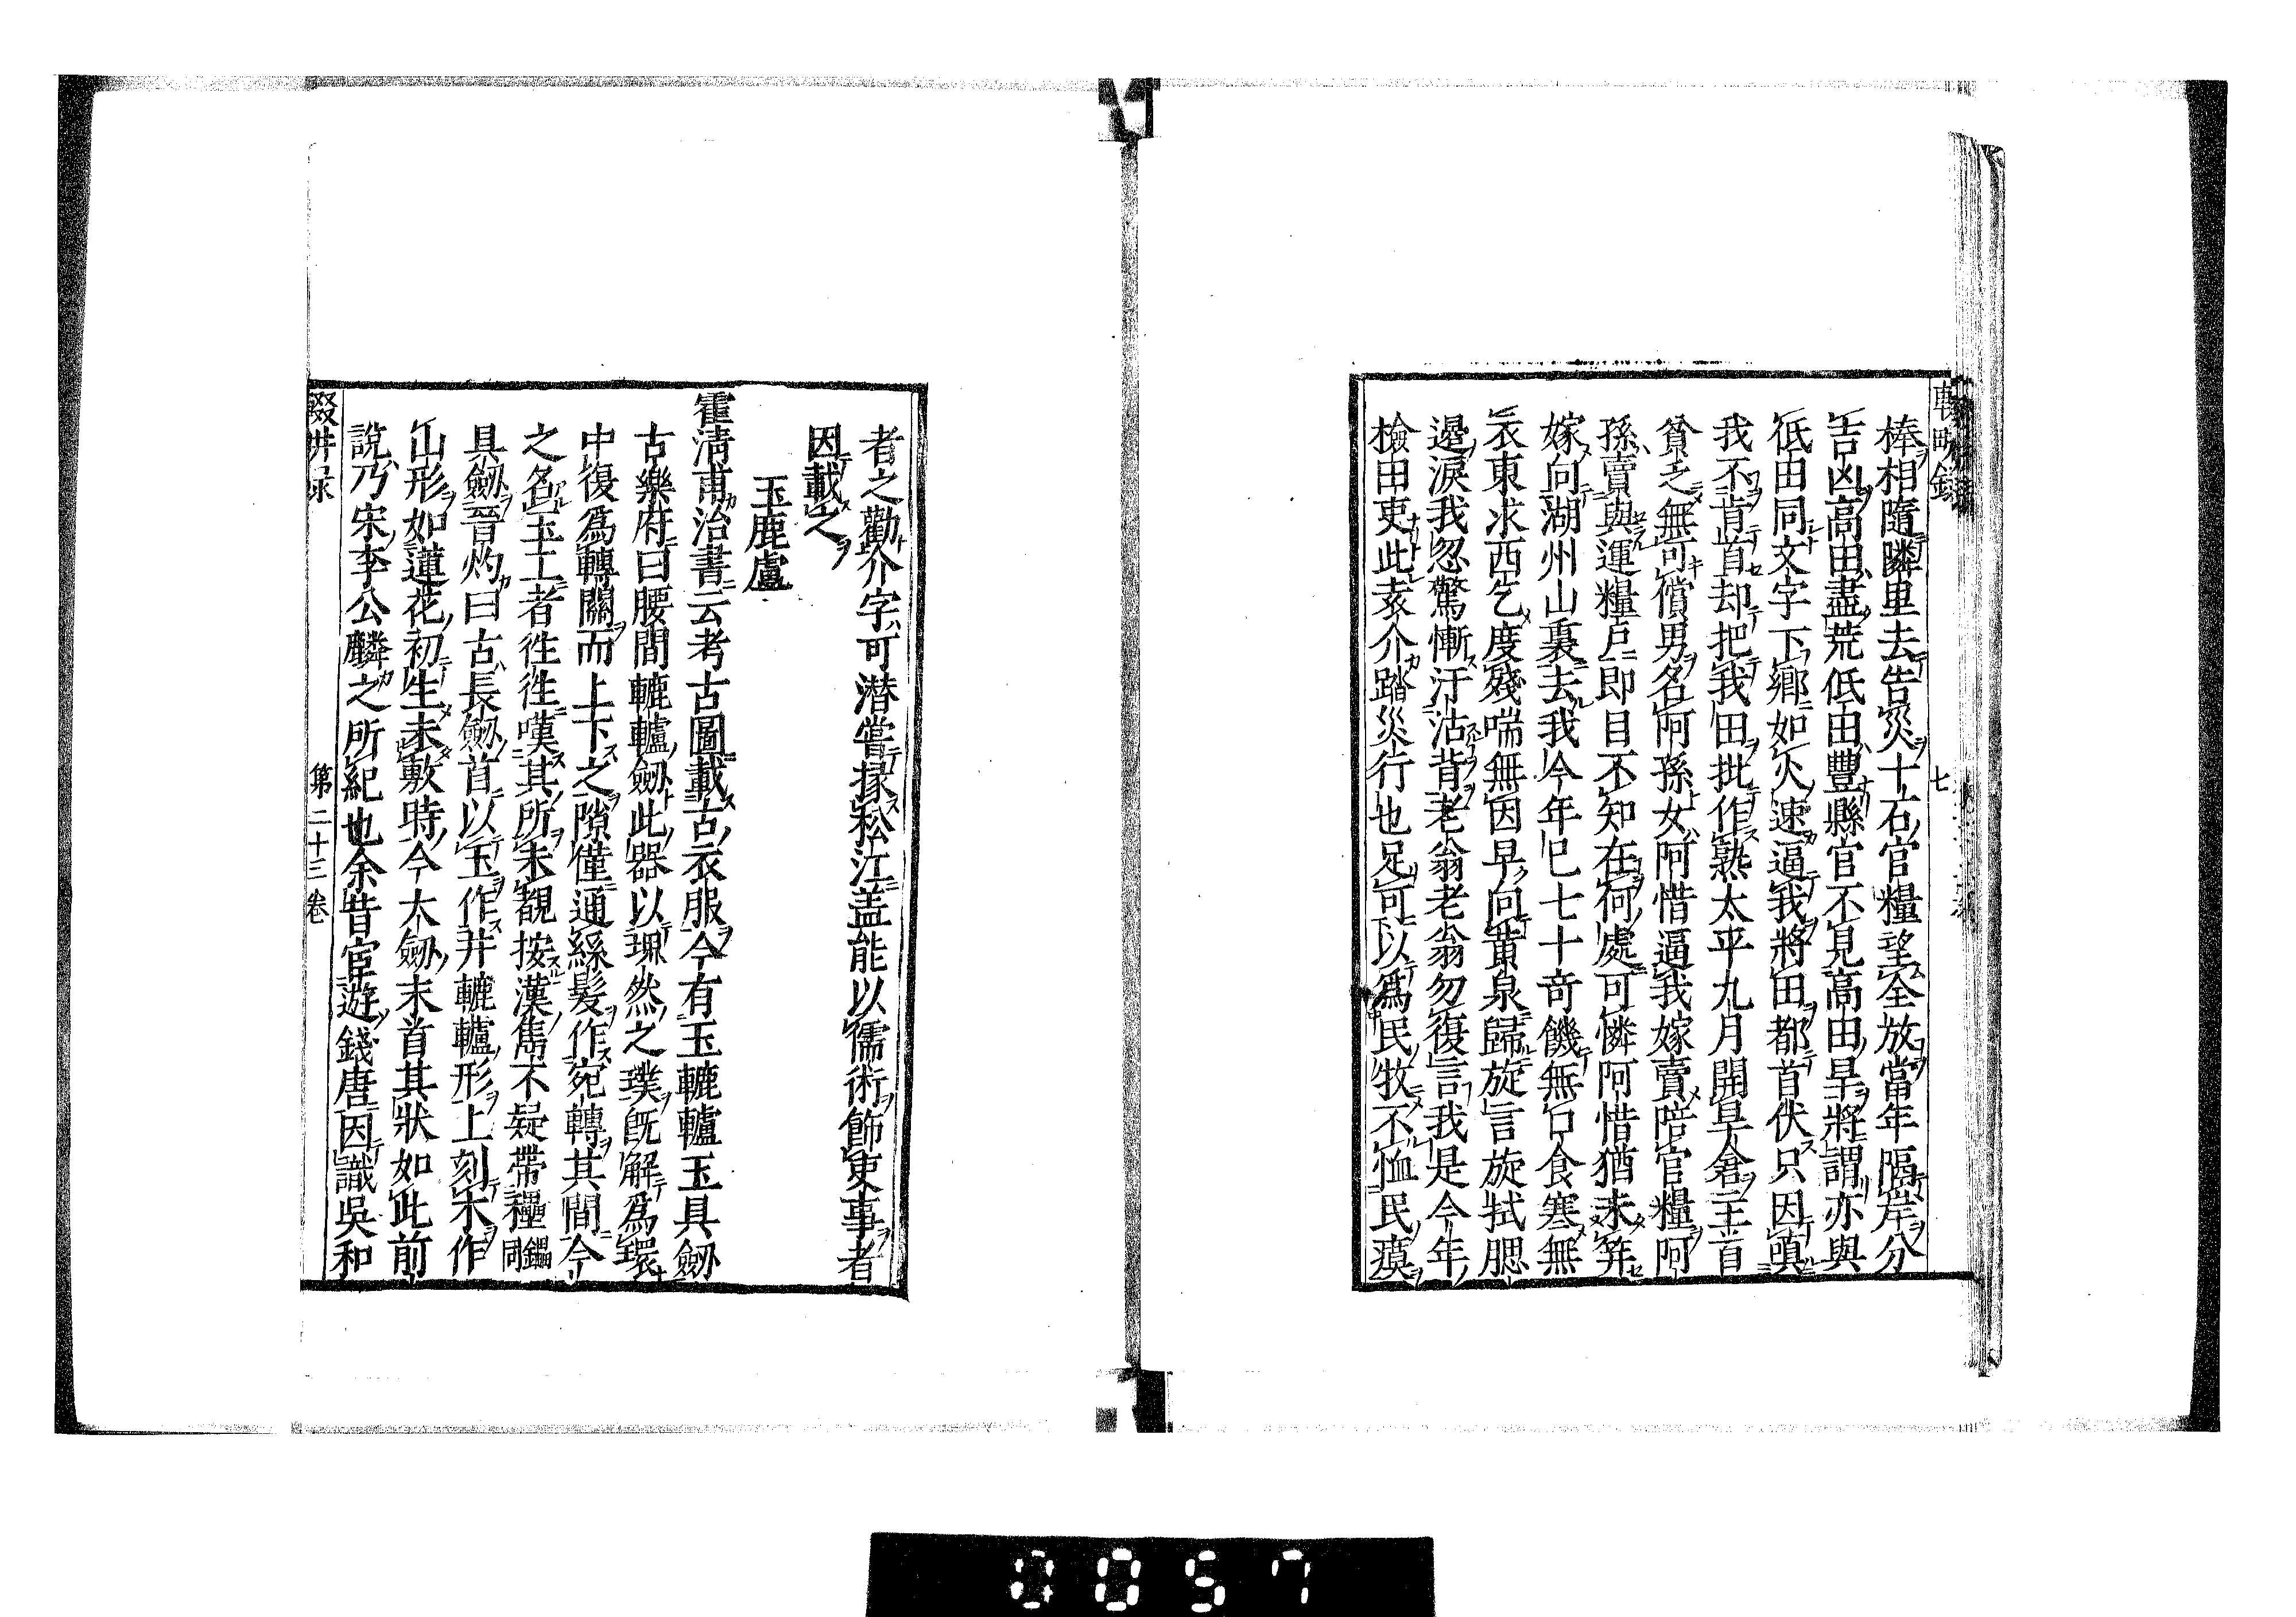 棒相隨隣里去告災十石官糧望全放當年隔岸分
吉凶高田盡荒低田豐縣官不見高田旱將謂亦與
低田同文字下鄉如火速逼我將田都首伏只因嗔
我不肯首却把我田批作熟太平九月開旱倉主首
貧乏無可償男名阿孫女阿惜逼我嫁賣陪官糧阿
孫賣與運糧戶即目不知在何處可憐阿惜猶未筓
嫁向湖州山裏去我今年已七十奇饑無口食寒無
衣東求西乞度殘喘無因早向黃泉歸旋言旋拭腮
邊淚我忽驚慚汗沾背老翁老翁勿復言我是今年
檢田吏此袁介踏災行也足可以爲民牧不恤民瘼
七
者之勸介字可潛嘗掾松江盖能以儒術飾吏事者
因載之
玉鹿盧
霍清甫治書云考古圖載古衣服今有玉轆轤玉具劒
古樂府曰腰間轆轤劒此器以珮然之璞既解爲環
中復爲轉關而上下之隙僅通絲髮作宛轉其間今
之名玉工者徃徃嘆其所未覩按漢雋不疑帶櫑鑘同
具劒晉灼曰古長劒首以玉作井轆轤形上刻木作
山形如蓮花初生未敷時今大劒木首其狀如此前
說乃宋李公麟之所紀也余昔宦遊錢唐因識吳和
第二十三卷
0057